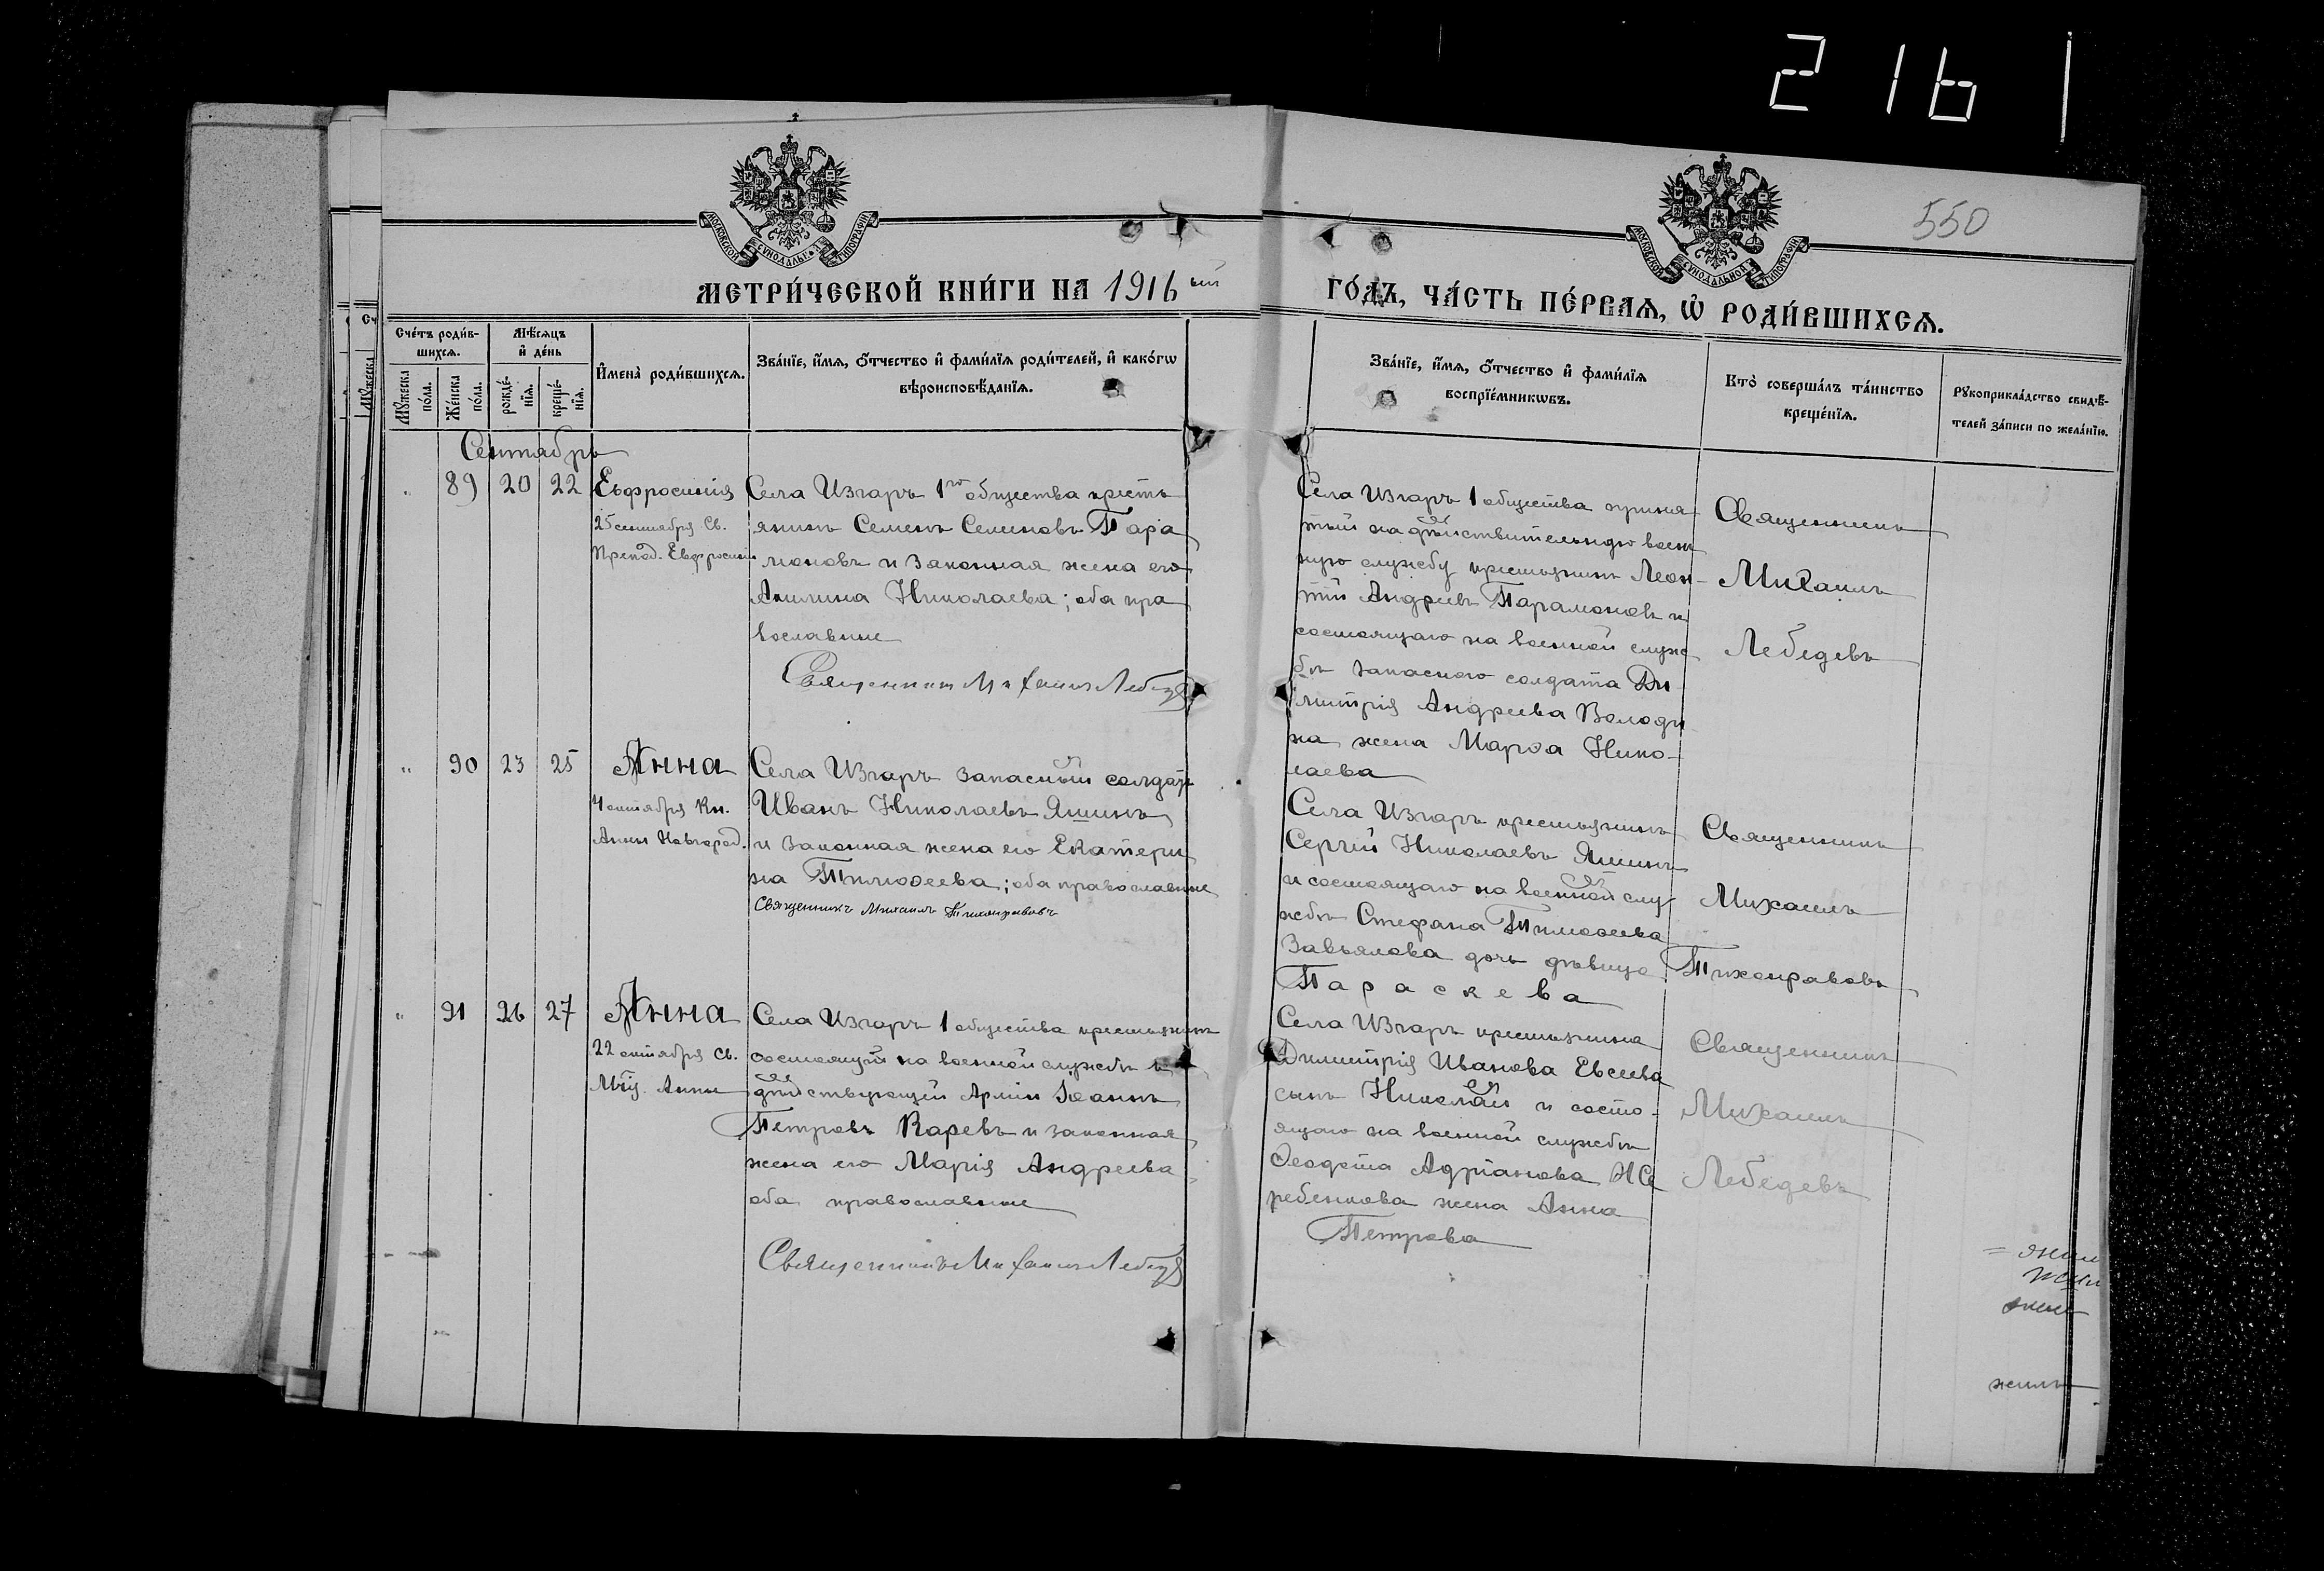 2161
550
МОСКОВСКОЙ СѴНОДАЛЬНОЙ ТИПОГРАФІИ
МОСКОВСКОЙ СѴНОДАЛЬНОЙ ТИПОГРАФІИ
МЕТРИ́ЧЕСКОЙ КНИ́ГИ НА 1916 ый
ГО́ДЪ, ЧА́СТЬ ПЕ́РВАѦ, Ѡ РОДИ́ВШИХСѦ.
Сче́тъ роди́в-
шихсѧ.
Мꙋжеска по́ла.
Же́нска по́ла.
Мѣ́сѧцъ
и҆ де́нь
рожде́-
нїѧ.
креще́-
нїѧ.
И҆мена̀ роди́вшихсѧ.
Зва́нїе, и҆́мѧ, ѻ҆́тчество и҆ фами́лїѧ роди́телей, и҆ како́гѡ
вѣроисповѣ́данїѧ.
Зва́нїе, и҆́мѧ, ѻ҆́тчество и҆ фами́лїѧ
воспрїе́мникѡвъ.
Кто̀ соверша́лъ та́инство
креще́нїѧ.
Рꙋкоприкла́дство свидѣ́-
телей за́писи по жела́нїю.
Сентябрь
" 89 20 22 Евфросинія
25 сентября Св.
Препод. Евфросиніи
Села Изгаръ 1го общества кресть
янинъ Семенъ Семеновъ Пара
моновъ и законная жена его
Акилина Николаева; оба пра
вославные
Священникъ Михаилъ Лебедевъ
Села Изгаръ 1 общества приня
тый на дѣйствительную воен
ную службу крестьянинъ Леон-
тій Андреевъ Парамоновъ и
состоящаго на военной служ
бѣ запасного солдата Ди
митрія Андреева Володи
на жена Марѳа Нико-
лаева
Священникъ
Михаилъ
Лебедевъ
" 90 23 25 Анна
4 октября Кн.
Анны Новгород.
Села Изгаръ запасный солдатъ
Иванъ Николаевъ Яшинъ
и законная жена его Екатери
на Тимоѳеева; оба православные
Священникъ Михаилъ Тихонравовъ
Села Изгаръ крестьянинъ
Сергій Николаевъ Яшинъ
и состоящаго на военной слу
жбѣ Стефана Тимоѳеева
Завьялова дочь дѣвица
Параскева
Священникъ
Михаилъ
Тихонравовъ
" 91 26 27 Анна
22 октября Св.
Мц. Анны
Села Изгаръ 1 общества крестьянинъ
состоящій на военной службѣ въ
дѣйствующей Арміи Іоаннъ
Петровъ Каревъ и законная
жена его Марія Андреева
оба православные
Священникъ Михаилъ Лебедевъ
Села Изгаръ крестьянина
Димитрія Иванова Евсеева
сынъ Николай и состо-
ящаго на военной службѣ
Ѳеодота Адріанова Же
ребенкова жена Анна
Петрова
Священникъ
Михаилъ
Лебедевъ